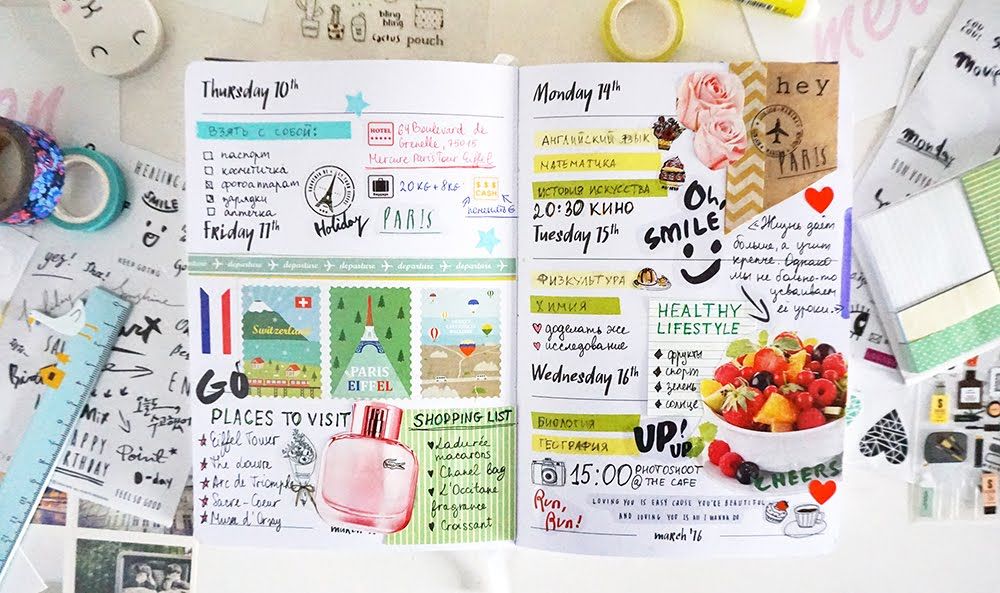 bling
bling
cactus pouch
Thursday 10th
ВЗЯТЬ С СОБОЙ:
паспорт
косметичка
фотоаппарат
зарядки
аптечка
HOTEL
64 Boulevard de
Grenelle, 75015
Mercure Paris Tour Eiffel
20 KG + 8 KG
$ $ $
CASH
Holiday
PARIS
Friday 11th
departure departure departure departure departure
Switzerland
PARIS
EIFFEL
GO
PLACES TO VISIT
Eiffel Tower
The Louvre
Arc de Triomphe
Sacre-Coeur
Musee d'Orsay
SHOPPING LIST
Ladurée
macarons
Chanel bag
L'Occitane
fragrance
Croissant
march '16
Monday 14th
АНГЛИЙСКИЙ ЯЗЫК
МАТЕМАТИКА
ИСТОРИЯ ИСКУССТВА
20:30 КИНО
hey
PARIS
Oh,
SMILE
Tuesday 15th
ФИЗКУЛЬТУРА
ХИМИЯ
доделать же
исследование
«Жизнь даёт
больше, а учит
крепче. Однако
мы не больно-то
усваиваем
её уроки.»
HEALTHY
LIFESTYLE
фрукты
спорт
зелень
солнце
Wednesday 16th
БИОЛОГИЯ
ГЕОГРАФИЯ
UP!
UP
15:00 PHOTOSHOOT
@ THE CAFE
CHEERS
Run,
Run!
LOVING YOU IS EASY CAUSE YOU'RE BEAUTIFUL
AND LOVING YOU IS ALL I WANNA DO
march '16
HEALING
SMILE
KEEP GOING
HAPPY
BIRTHDAY
Point*
D-day
FEEL SO GOOD
Monday
BON VOYAGE